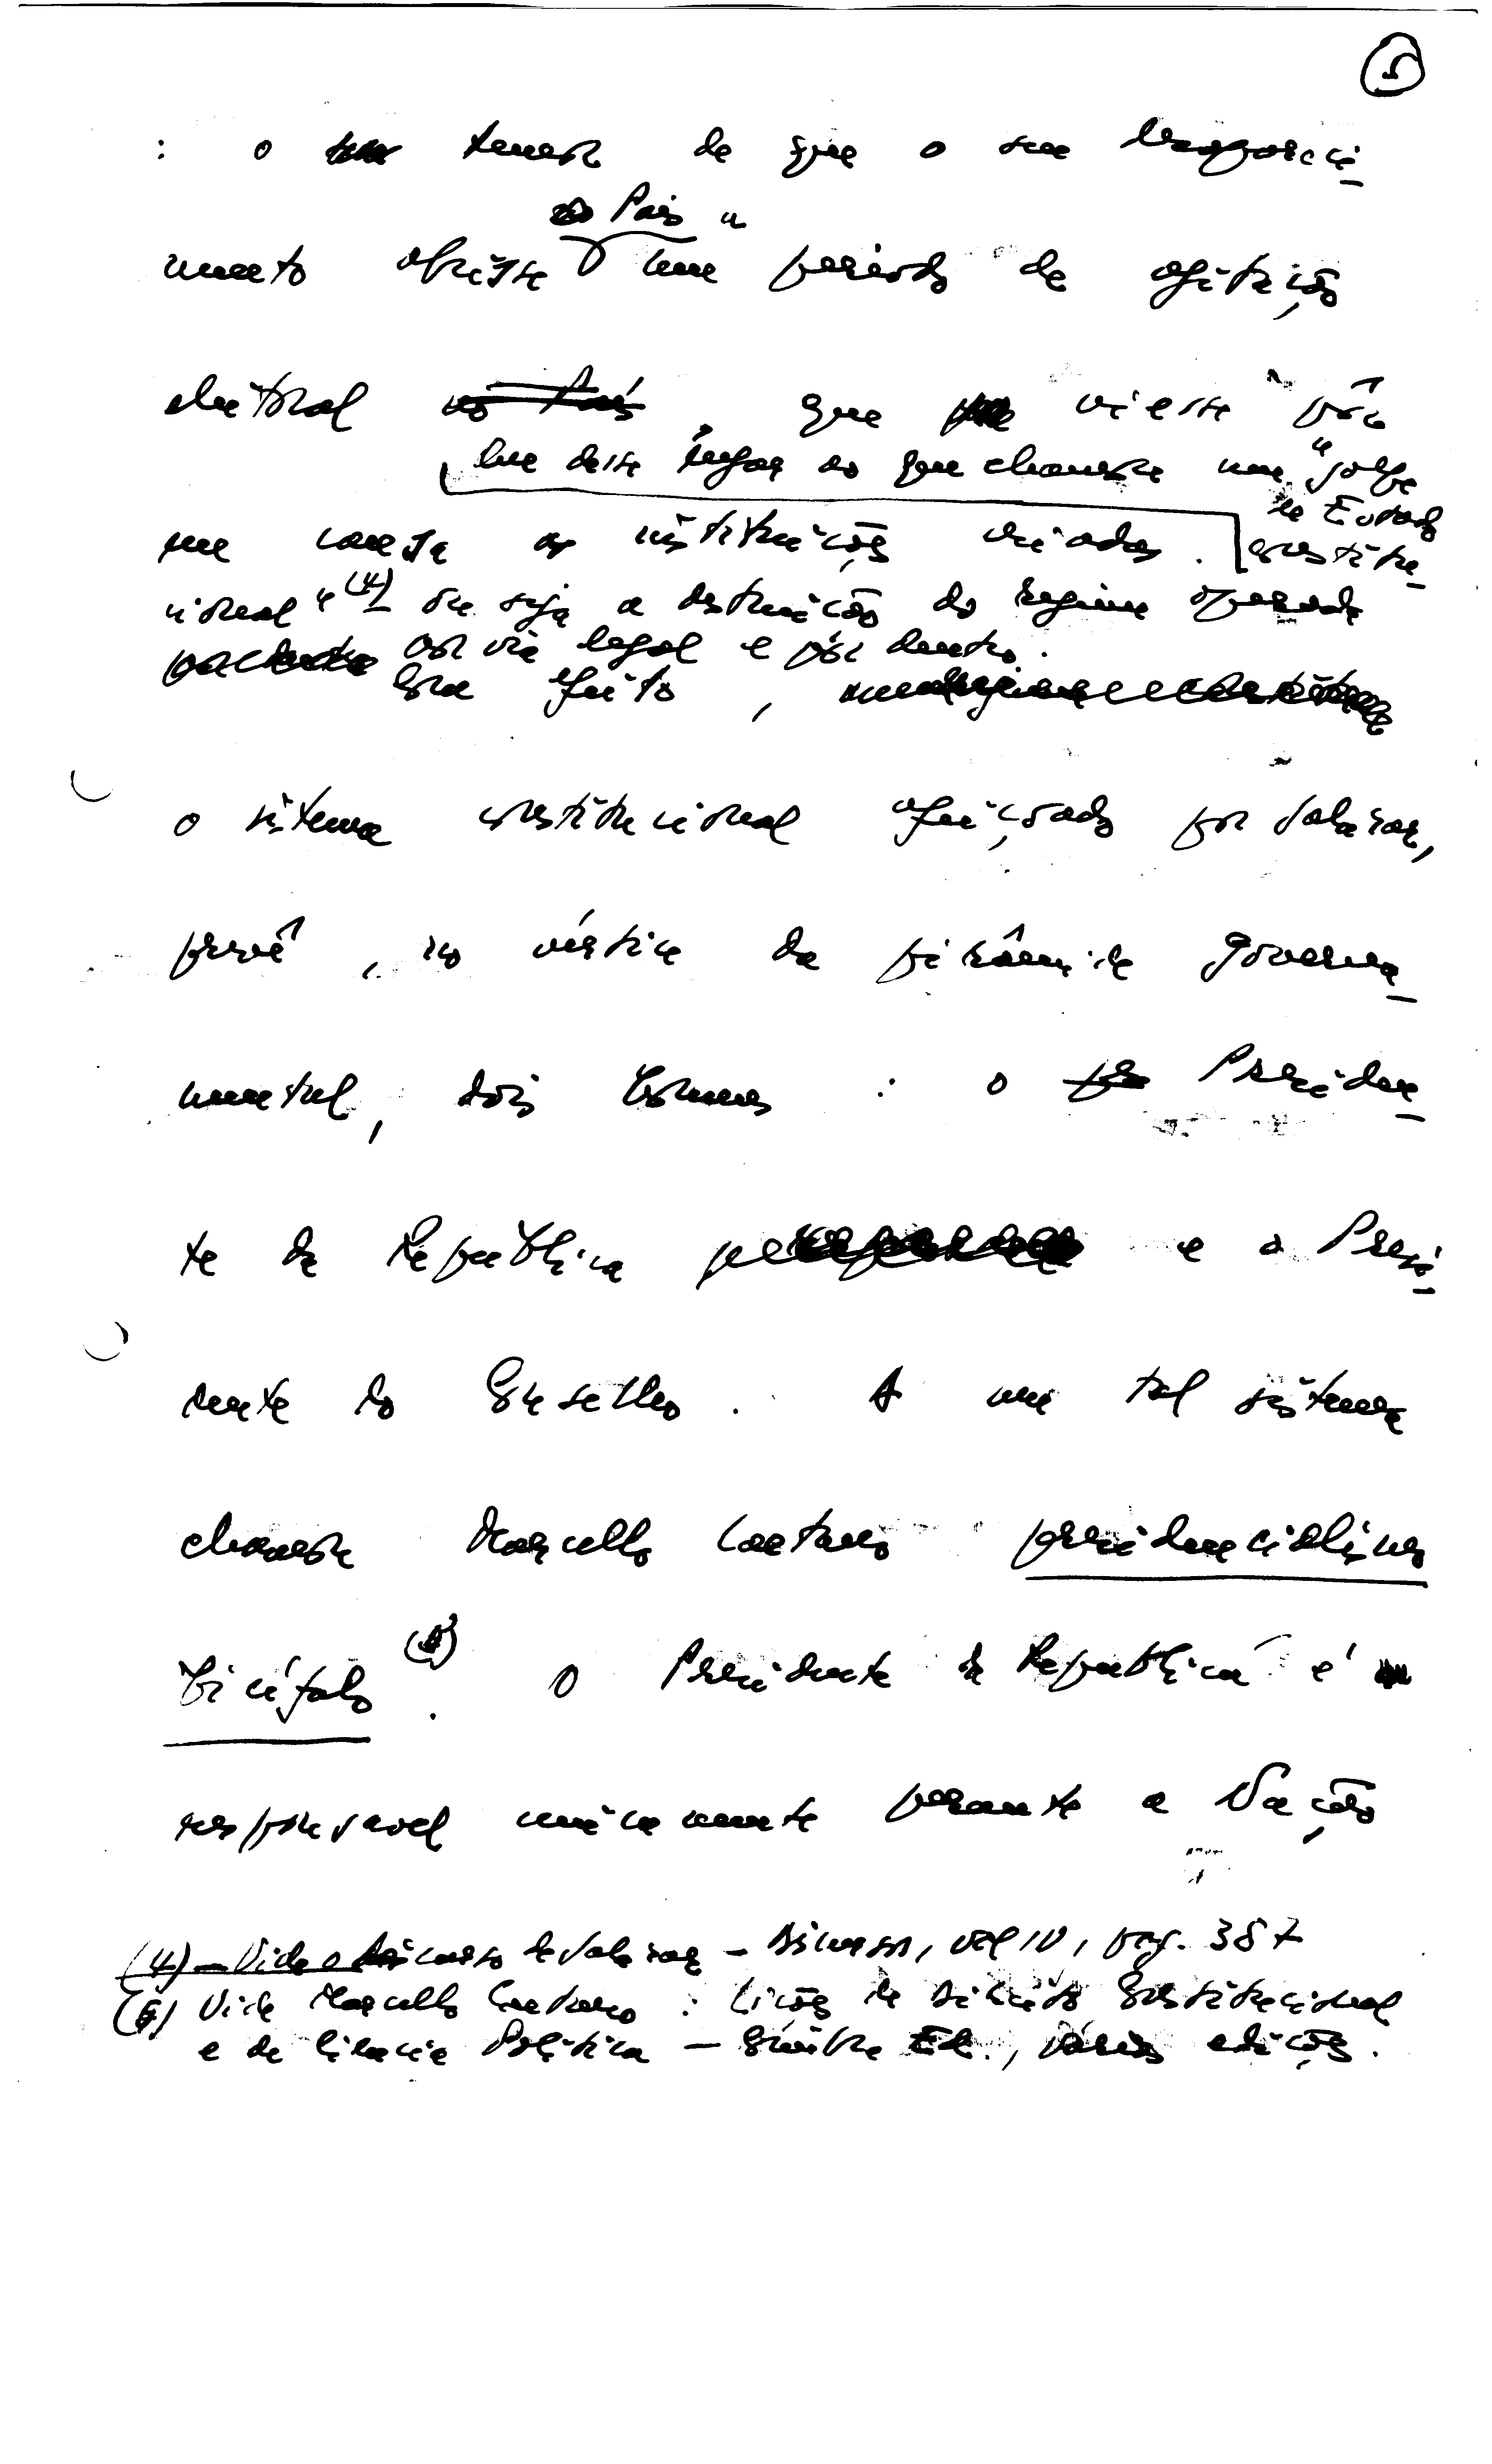 5
: o temor de que o seu desapareci_
o País a
mento abrisse um período de agitação
eleitoral no País, que viesse pôr
que desse lugar ao que chamava um "golpe
de Estado
em causa as instituições criadas. constitu_
cional" (4) ou seja a destruição do regime operada
por via legal e por dentro.
Com efeito,
o sistema constitucional afeiçoado por Salazar,
prevê, no vértice da pirâmide governa_
mental, dois : o Presiden_
te da República e o Presi_
dente do Conselho. A um tal sistema
chamava Marcello Caetano presidencialismo
bicéfalo. O Presidente da República é
responsavel unicamente perante a Nação
(4) – Vide discurso de Salazar – Discursos, vol IV, pag. 387
(5) Vide Marcello Caetano: Lições de Direito Constitucional
e de Ciencia Politica – Coimbra Ed., várias edições.